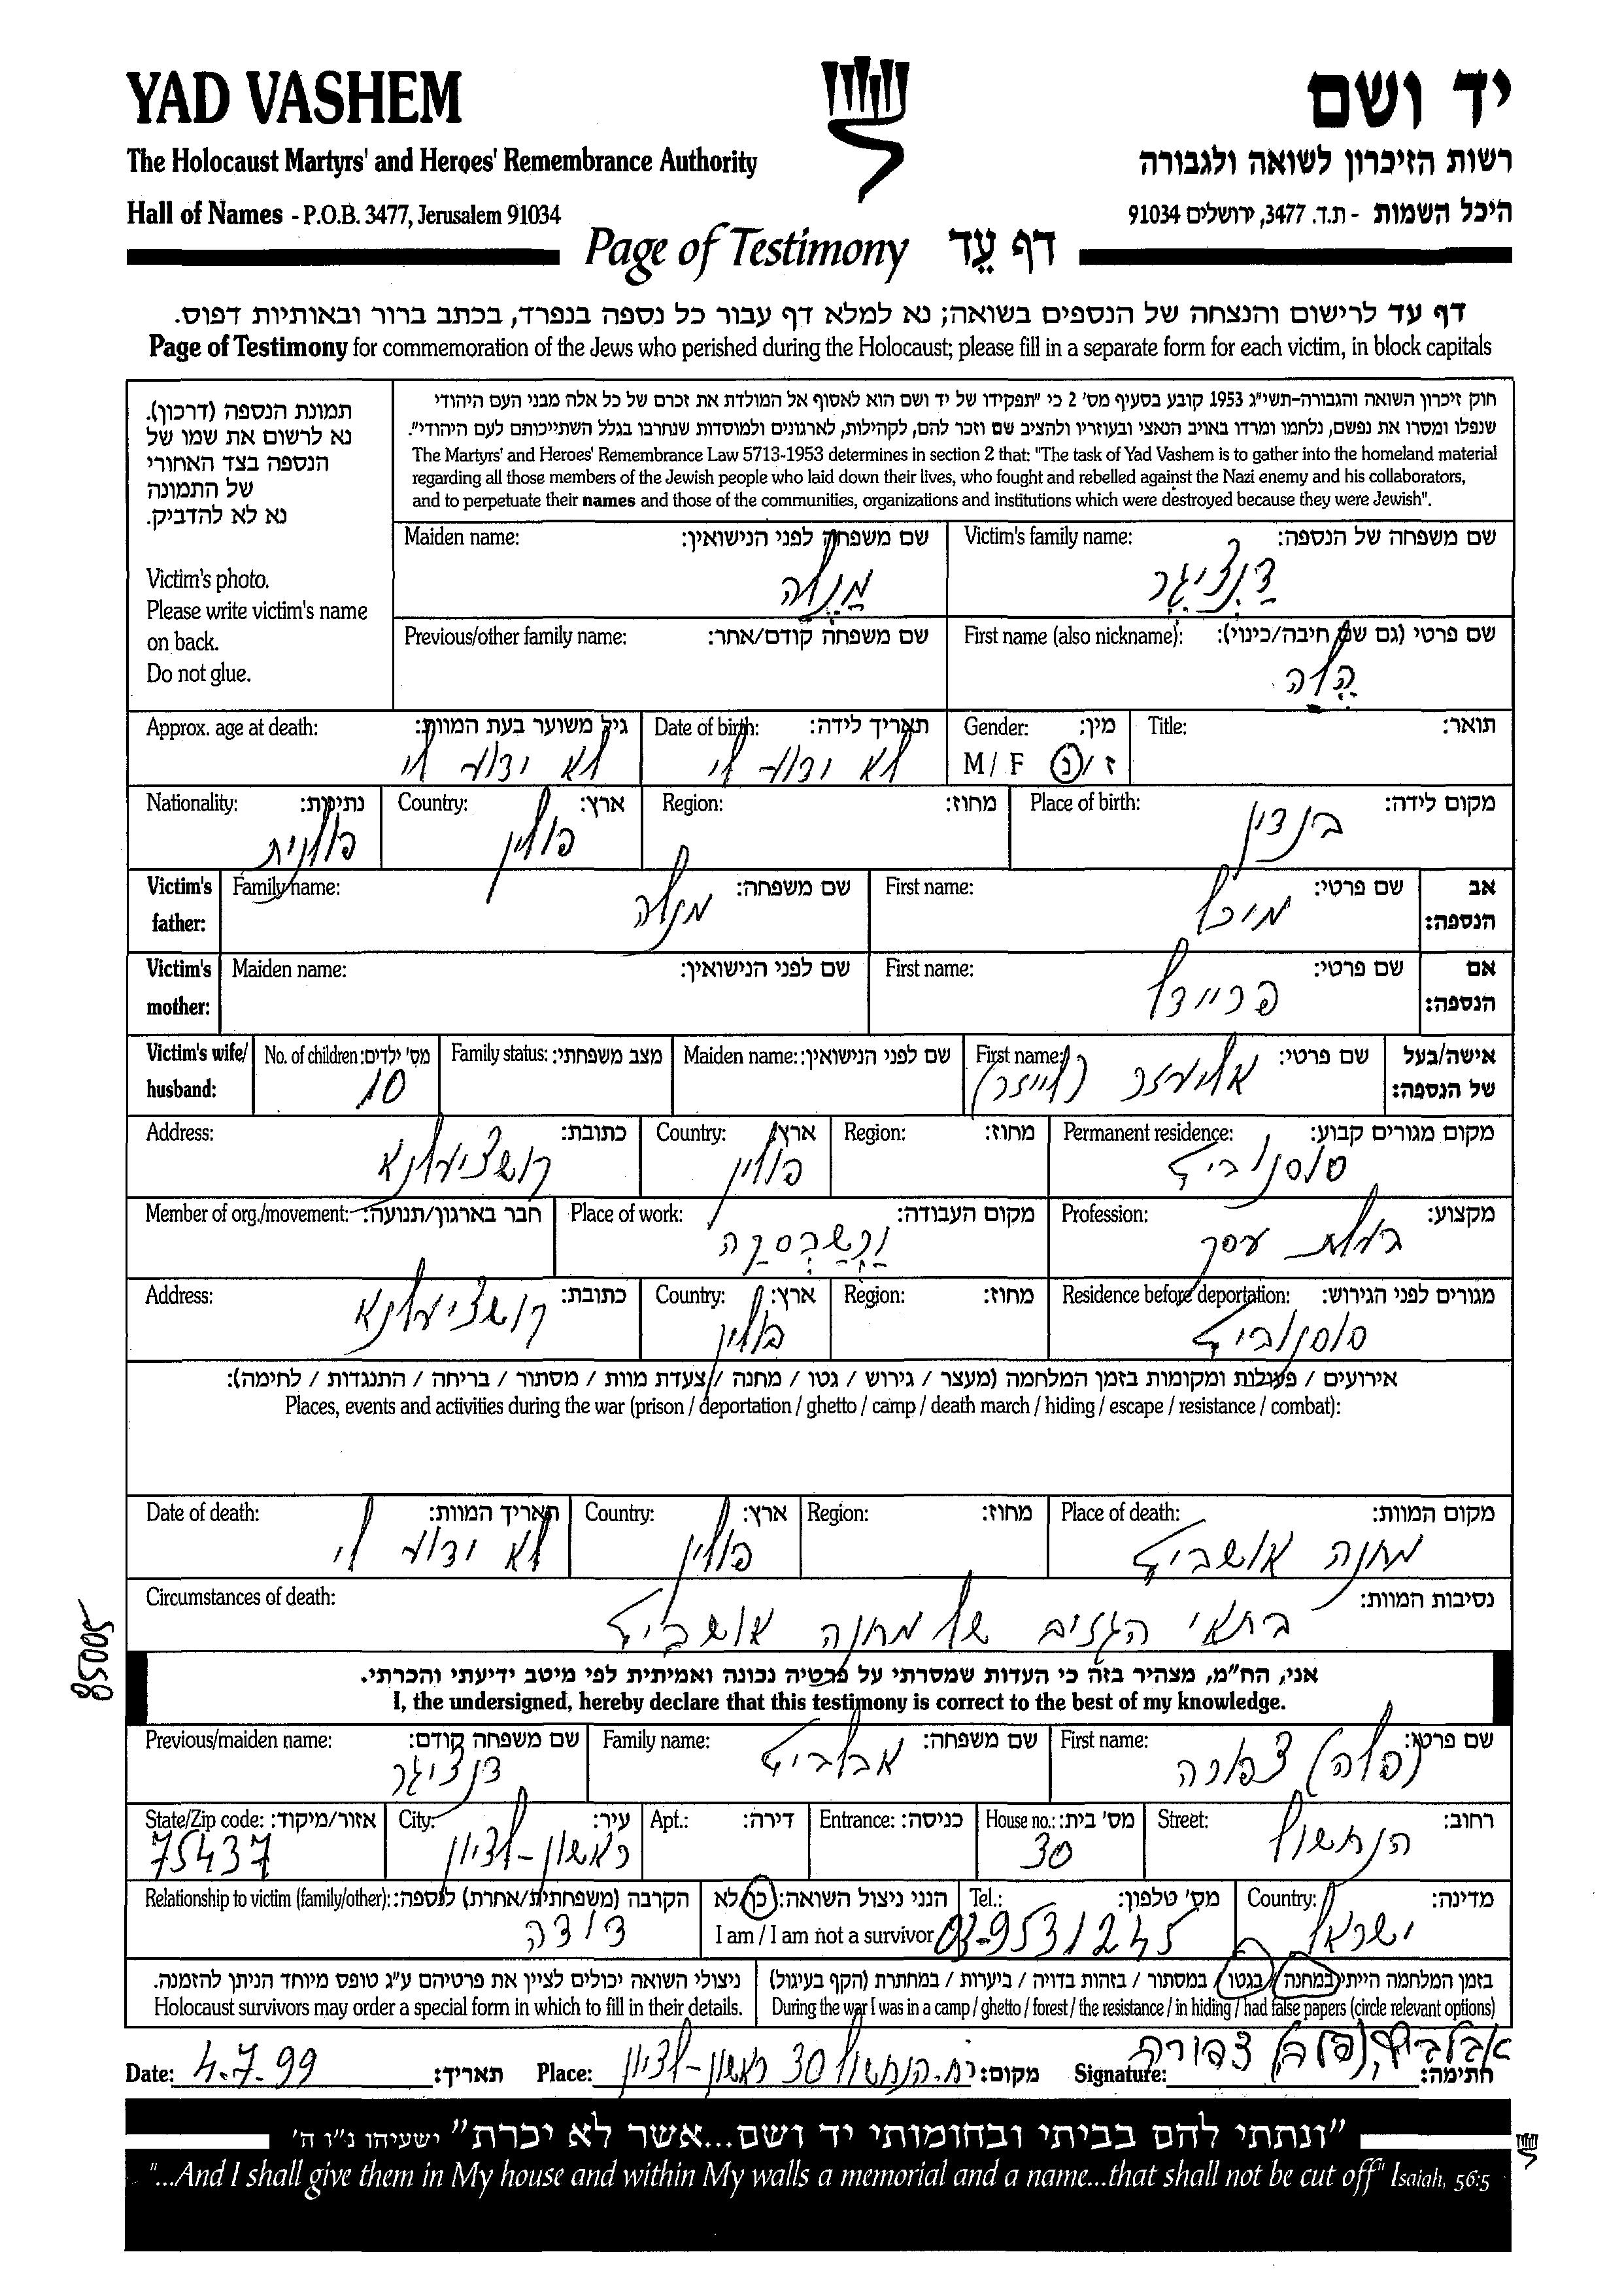 YAD VASHEM
יד ושם
The Holocaust Martyrs' and Heroes' Remembrance Authority
רשות הזיכרון לשואה ולגבורה
Hall of Names - P.O.B. 3477, Jerusalem 91034
היכל השמות - ת.ד. 3477, ירושלים 91034
Page of Testimony דף עֵד
דף עד לרישום והנצחה של הנספים בשואה; נא למלא דף עבור כל נספה בנפרד, בכתב ברור ובאותיות דפוס.
Page of Testimony for commemoration of the Jews who perished during the Holocaust; please fill in a separate form for each victim, in block capitals
תמונת הנספה (דרכון).
נא לרשום את שמו של
הנספה בצד האחורי
של התמונה
נא לא להדביק.
Victim's photo.
Please write victim's name
on back.
Do not glue.
חוק זיכרון השואה והגבורה-תשי"ג 1953 קובע בסעיף מס' 2 כי "תפקידו של יד ושם הוא לאסוף אל המולדת את זכרם של כל אלה מבני העם היהודי
שנפלו ומסרו את נפשם, נלחמו ומרדו באויב הנאצי ובעוזריו ולהציב שם וזכר להם, לקהילות, לארגונים ולמוסדות שנחרבו בגלל השתייכותם לעם היהודי".
The Martyrs' and Heroes' Remembrance Law 5713-1953 determines in section 2 that: "The task of Yad Vashem is to gather into the homeland material
regarding all those members of the Jewish people who laid down their lives, who fought and rebelled against the Nazi enemy and his collaborators,
and to perpetuate their names and those of the communities, organizations and institutions which were destroyed because they were Jewish".
Victim's family name: שם משפחה של הנספה:
דַנְצִיגֶר
Maiden name: שם משפחה לפני הנישואין:
מַנֶלה
First name (also nickname): שם פרטי (גם שם חיבה/כינוי):
הֶלה
Previous/other family name: שם משפחה קודם/אחר:
Title: תואר:
Gender: מין:
M / F ז / נ
Date of birth: תאריך לידה:
לא ידוע לי
Approx. age at death: גיל משוער בעת המוות:
לא ידוע לי
Place of birth: מקום לידה:
בנדין
Region: מחוז:
Country: ארץ:
פולין
Nationality: נתינות:
פולנית
Victim's father: אב הנספה:
First name: שם פרטי:
מיכל
Family name: שם משפחה:
מנלה
Victim's mother: אם הנספה:
First name: שם פרטי:
פריידל
Maiden name: שם לפני הנישואין:
Victim's wife/ husband: אישה/בעל של הנספה:
First name: שם פרטי:
אליעזר (לייזר)
Maiden name: שם לפני הנישואין:
Family status: מצב משפחתי:
No. of children: מס' ילדים:
10
Permanent residence: מקום מגורים קבוע:
סוסנוביץ
Region: מחוז:
Country: ארץ:
פולין
Address: כתובת:
קושציעלנא
Profession: מקצוע:
בעלת עסק
Place of work: מקום העבודה:
Member of org./movement: חבר בארגון/תנועה:
Residence before deportation: מגורים לפני הגירוש:
סוסנוביץ
Region: מחוז:
Country: ארץ:
פולין
Address: כתובת:
קושציעלנא
אירועים / פעולות ומקומות בזמן המלחמה (מעצר / גירוש / גטו / מחנה / צעדת מוות / מסתור / בריחה / התנגדות / לחימה):
Places, events and activities during the war (prison / deportation / ghetto / camp / death march / hiding / escape / resistance / combat):
Place of death: מקום המוות:
מחנה אושביץ
Region: מחוז:
Country: ארץ:
פולין
Date of death: תאריך המוות:
לא ידוע לי
Circumstances of death: נסיבות המוות:
בתאי הגזים של מחנה אושביץ
85005
אני, הח"מ, מצהיר בזה כי העדות שמסרתי על פרטיה נכונה ואמיתית לפי מיטב ידיעתי והכרתי.
I, the undersigned, hereby declare that this testimony is correct to the best of my knowledge.
First name: שם פרטי:
(פלה) צפורה
Family name: שם משפחה:
אבלביץ
Previous/maiden name: שם משפחה קודם:
דנציגר
Street: רחוב:
הנחשול
House no.: מס' בית:
30
Entrance: כניסה:
Apt.: דירה:
City: עיר:
ראשון-לציון
State/Zip code: אזור/מיקוד:
75437
Country: מדינה:
ישראל
Tel.: מס' טלפון:
03-9531245
הנני ניצול השואה: כן לא
I am / I am not a survivor
Relationship to victim (family/other): הקרבה (משפחתית/אחרת) לנספה:
דודה
בזמן המלחמה הייתי במחנה / בגטו / במסתור / בזהות בדויה / ביערות / במחתרת (הקף בעיגול)
During the war I was in a camp / ghetto / forest / the resistance / in hiding / had false papers (circle relevant options)
ניצולי השואה יכולים לציין את פרטיהם ע"ג טופס מיוחד הניתן להזמנה.
Holocaust survivors may order a special form in which to fill in their details.
Date: 4.7.99 תאריך:
Place: רח. הנחשול 30 ראשון-לציון מקום:
Signature: אבלביץ (פלה) צפורה חתימה:
"ונתתי להם בביתי ובחומותי יד ושם...אשר לא יכרת" ישעיהו נ"ו ה'
"...And I shall give them in My house and within My walls a memorial and a name...that shall not be cut off" Isaiah, 56:5